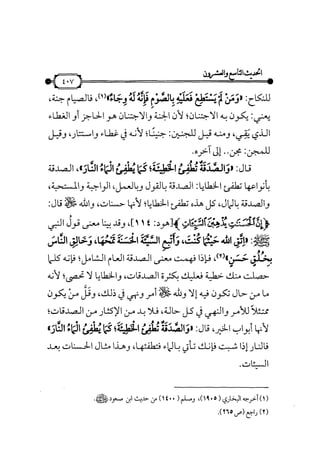 الحديث التاسع والعشرون
٤٠٧
للنكاح: «وَمَنْ لَمْ يَسْتَطِعْ فَعَلَيْهِ بِالصَّوْمِ فَإِنَّهُ لَهُ وِجَاءٌ»(١)، فالصيام جنة،
يعني: يكون به الاجتنان؛ لأن الجنة والاجتنان هو الحاجز أو الغطاء
الذي يَقِي، ومنه قيل للجنين: جنينًا؛ لأنه في غطاء واستتار، وقيل
للمجن: مجن.. إلى آخره.
قال: «وَالصَّدَقَةُ تُطْفِئُ الْخَطِيئَةَ؛ كَمَا يُطْفِئُ الْمَاءُ النَّارَ»، الصدقة
بأنواعها تطفئ الخطايا: الصدقة بالقول وبالعمل، الواجبة والمستحبة،
والصدقة بالمال، كل هذه تطفئ الخطايا؛ لأنها حسنات، والله ﷻ قال:
﴿إِنَّ الْحَسَنَاتِ يُذْهِبْنَ السَّيِّئَاتِ﴾ [هود: ١١٤]، وقد بينا معنى قول النبي
ﷺ: «اتَّقِ اللهَ حَيْثُمَا كُنْتَ، وَأَتْبِعِ السَّيِّئَةَ الْحَسَنَةَ تَمْحُهَا، وَخَالِقِ النَّاسَ
بِخُلُقٍ حَسَنٍ»(٢)، فإذا فهمت معنى الصدقة العام الشامل؛ فإنه كلما
حصلت منك خطيئة فعليك بكثرة الصدقات، والخطايا لا تحصى؛ لأنه
ما من حال تكون فيه إلا ولله ﷻ أمر ونهي في ذلك، وقَلَّ مَنْ يكون
ممتثلاً للأمر والنهي في كل حالة، فلا بد من الإكثار من الصدقات؛
لأنها أبواب الخير، قال: «وَالصَّدَقَةُ تُطْفِئُ الْخَطِيئَةَ؛ كَمَا يُطْفِئُ الْمَاءُ النَّارَ»
فالنار إذا شبت فإنك تأتي بالماء فتطفئها، وهذا مثال الحسنات بعد
السيئات.
(١) أخرجه البخاري (١٩٠٥)، ومسلم (١٤٠٠) من حديث ابن مسعود ﵁.
(٢) راجع (ص٢٦٥).